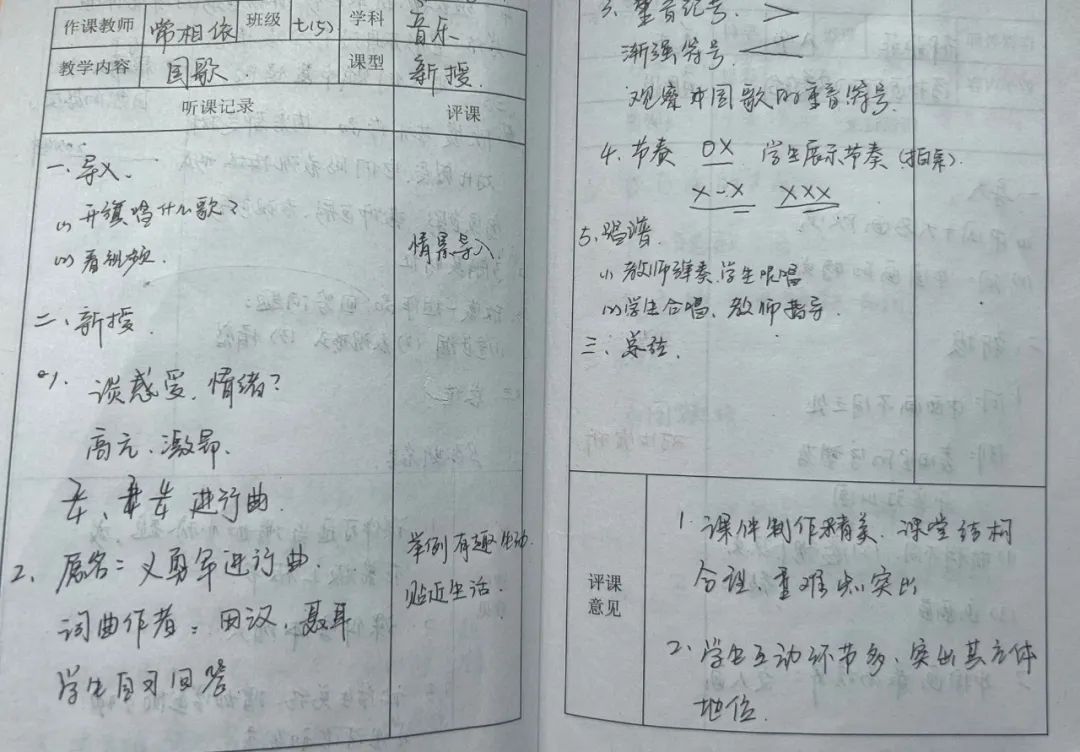 作课教师 常相依 班级 七(5) 学科 音乐
教学内容 国歌 课型 新授.
听课记录 评课
一、导入.
(1) 开旗唱什么歌?
(2) 看视频.
情景导入
二、新授.
谈感受、情绪?
高亢、激昂.
进行曲.
举例有趣生动.
贴近生活.
2、原名: 义勇军进行曲.
词曲作者: 田汉、聂耳
学生自习回答
3、重音记号. >
渐强符号. <
观察中国歌的重音符号.
4、节奏 0X 学生展示节奏(拍桌).
X-X XXX
5、唱谱.
(1) 教师弹奏,学生哼唱
(2) 学生合唱、教师指导.
三、总结.
评课意见
1. 课件制作精美、课堂结构
合理、重难点突出
2. 学生互动环节多、突出其主体
地位.